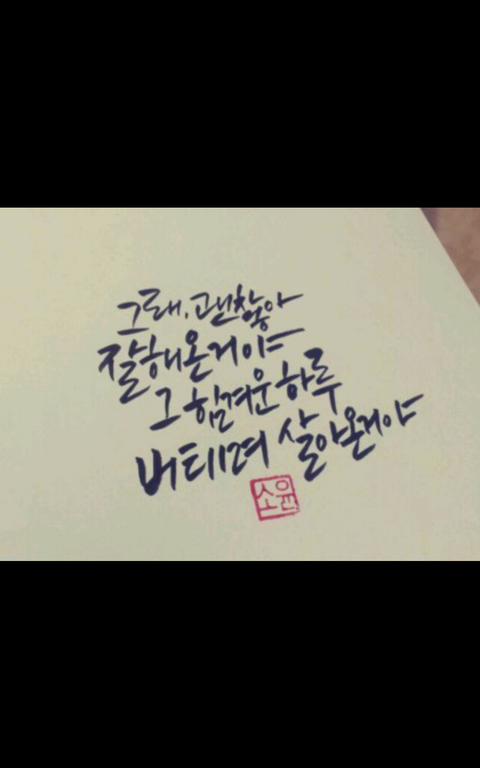 그래, 괜찮아
잘해온거야
그 힘겨운 하루
버티며 살아온거야
소윤